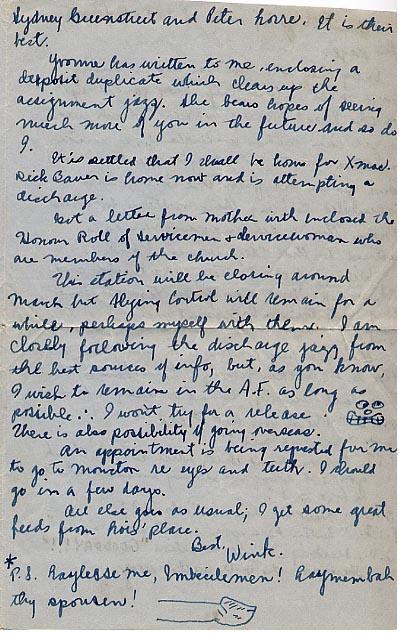 Sydney Greenstreet and Peter Lorre. It is their
best.
Yvonne has written to me, enclosing a
deposit duplicate which clears up the
assignment jazz. She bears hopes of seeing
much more of you in the future and so do
I.
It is settled that I shall be home for Xmas.
Dick Bauer is home now and is attempting a
discharge.
Got a letter from mother with inclosed the
Honour Roll of Servicemen & Servicewoman who
are members of the church.
This station will be closing around
March but Flying Control will remain for a
while, perhaps myself with them. I am
closely following the discharge jazz from
the best sources of info, but, as you know,
I wish to remain in the A.F. as long as
possible ∴ I won't try for a release.
There is also possibility of going overseas.
An appointment is being requested for me
to go to Moncton re eyes and teeth. I should
go in a few days.
All else goes as usual; I get some great
feeds from Lois' place.
Best,
Wink.
* P.S. me, Imbecilemen!
thy spousen!